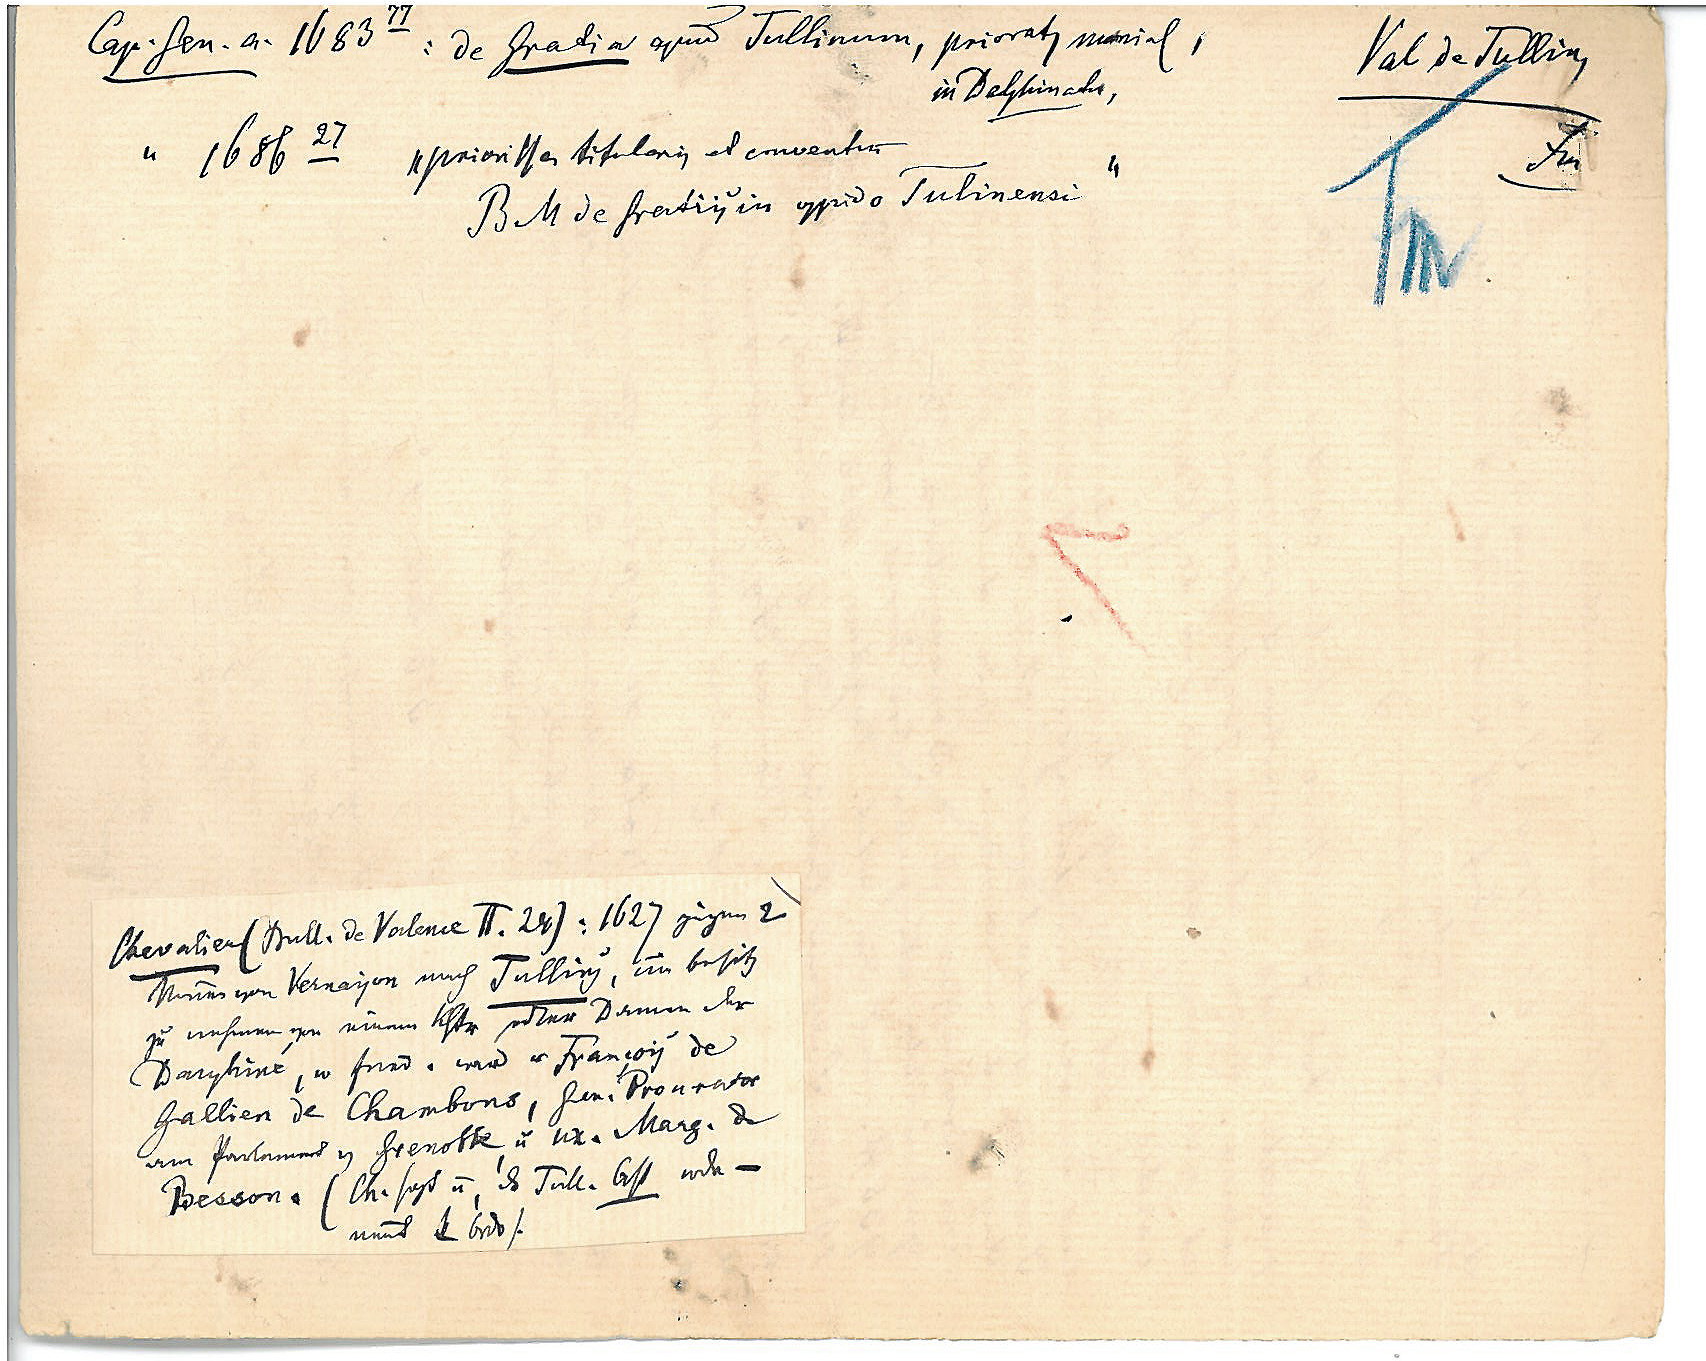 Cap. Gen. a. 1683 77 : de Gratia apud Tullinum, prioratus monial,
in Delphinatu,
Val de Tullins
Fm
" 1686 27 "priorissa titularis et conventus
B M de Gratiis in oppido Tulinensi "
Chevalier (Bull. de Valence II. 24) : 1627 gingen 2
Nonnen von Vernaison nach Tullins, um besitz
zu nehmen von einem Kltr edler Damen der
Dauphiné, w fund. ward v François de
Gallien de Chambons, Gen. Procurator
am Parlament v Grenoble, u ux. Marg. de
Besson. (Ch. sagt ü, ob Tull. Ben